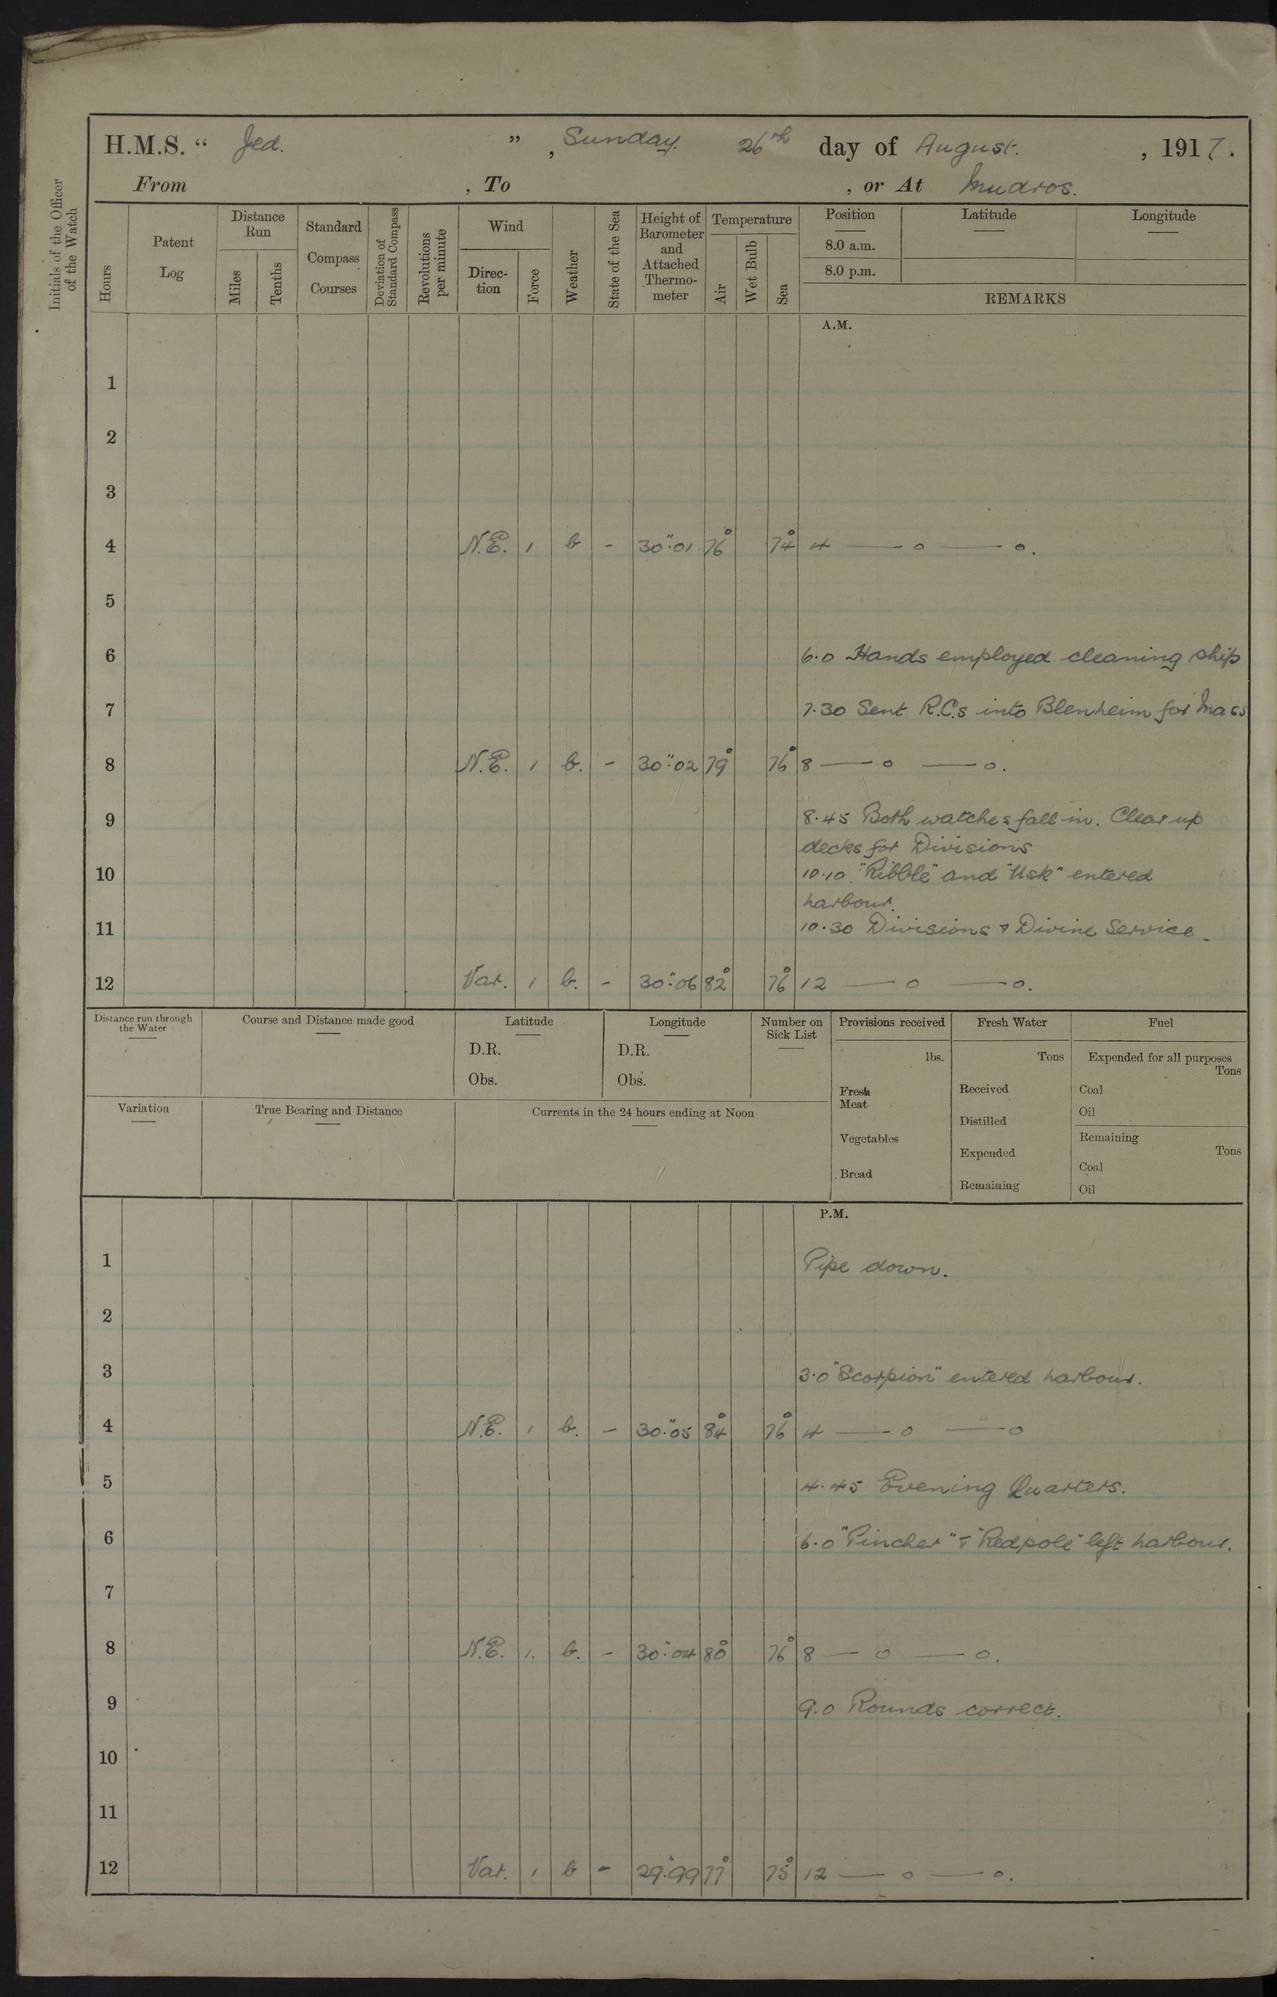 H.M.S. “ Jed. ” , Sunday. 26th day of August. , 1917.
From , To , or At Mudros.
Initials of the Officer of the Watch
Hours
Patent Log
Distance Run
Miles
Tenths
Standard Compass Courses
Deviation of Standard Compass
Revolutions per minute
Wind
Direc-tion
Force
Weather
State of the Sea
Height of Barometer and Attached Thermo-meter
Temperature
Air
Wet Bulb
Sea
Position Latitude Longitude
8.0 a.m.
8.0 p.m.
REMARKS
A.M.
1
2
3
4 N.E. 1 b - 30".01 76° 74° 4 — o — o.
5
6 6.0 Hands employed cleaning ship
7 7.30 Sent R.C.s into Blenheim for Mass
8 N.E. 1 b. - 30".02 79° 76° 8 — o — o.
9 8.45 Both watches fall in. Clear up
decks for Divisions
10 10.10 "Ribble" and "Usk" entered
harbour.
11 10.30 Divisions & Divine Service.
12 Var. 1 b. - 30".06 82° 76° 12 — o — o.
Distance run through the Water
Course and Distance made good
Latitude
D.R.
Obs.
Longitude
D.R.
Obs.
Number on Sick List
Provisions received
lbs.
Fresh Meat
Vegetables
Bread
Fresh Water
Tons
Received
Distilled
Expended
Remaining
Fuel
Expended for all purposes
Tons
Coal
Oil
Remaining
Tons
Coal
Oil
Variation
True Bearing and Distance
Currents in the 24 hours ending at Noon
P.M.
1 Pipe down.
2
3 3.0 "Scorpion" entered harbour.
4 N.E. 1 b. - 30".05 84° 76° 4 — o — o
5 4.45 Evening Quarters.
6 6.0 "Pincher" & "Redpole" left harbour.
7
8 N.E. 1. b. - 30".04 80° 76° 8 — o — o.
9 9.0 Rounds correct.
10
11
12 Var. 1 b - 29".99 77° 75° 12 — o — o.